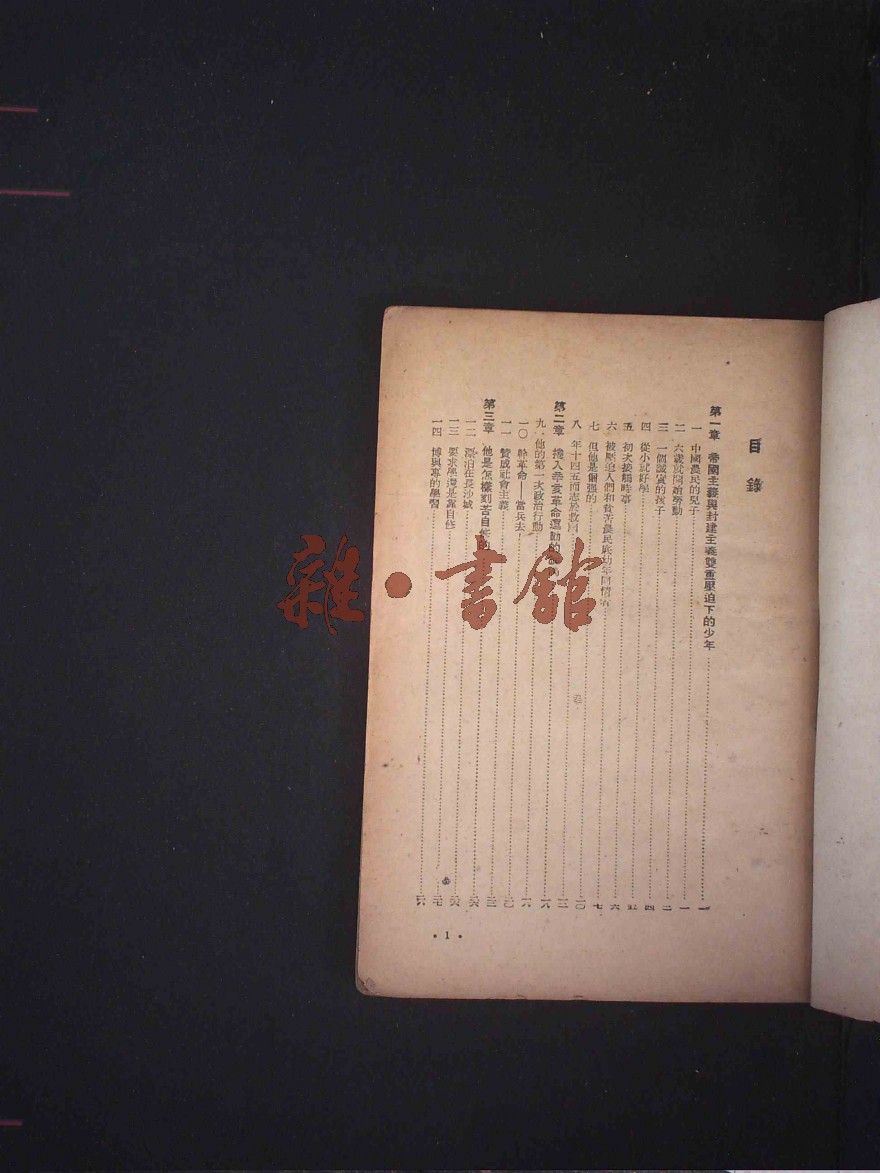 目錄
第一章 帝國主義與封建主義雙重壓迫下的少年 一
一 中國農民的兒子 一
二 六歲就開始勞動 一
三 一個誠實的孩子 二
四 從小就好學 四
五 初次接觸時事 五
六 被壓迫人們和貧苦農民底幼年同情者 六
七 但他是倔强的 七
八 年十四五而志於救國 一〇
第二章 捲入辛亥革命運動的 一三
九 他的第一次政治行動
一〇 幹革命——當兵去
一一 贊成社會主義
第三章 他是怎樣刻苦自修的
一二 漂泊在長沙城
一三 要求學還是靠自修
一四 博與專的學習
•1•
雜·書館